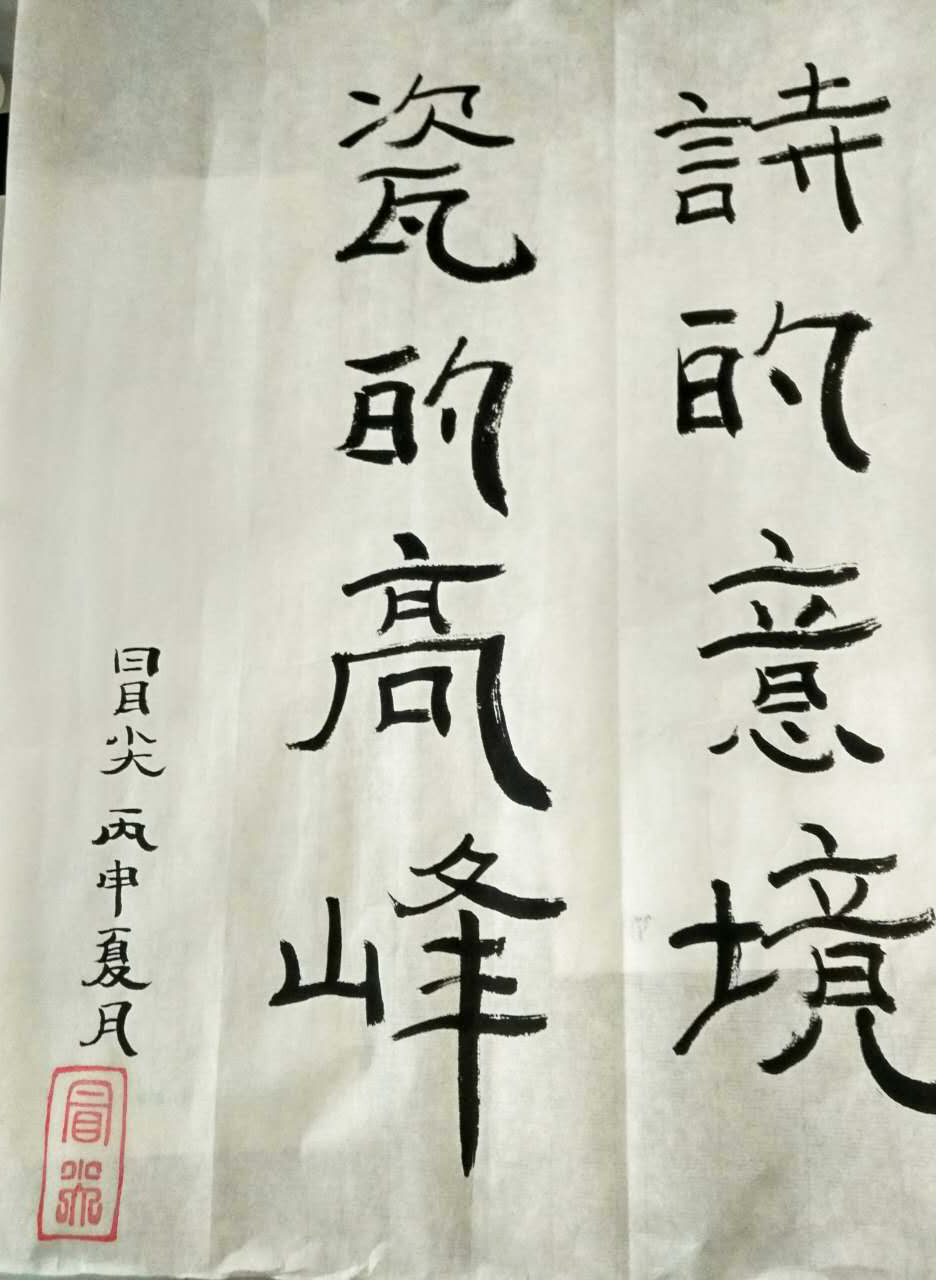 詩的意境
瓷的高峰
冒尖 丙申夏月
冒尖